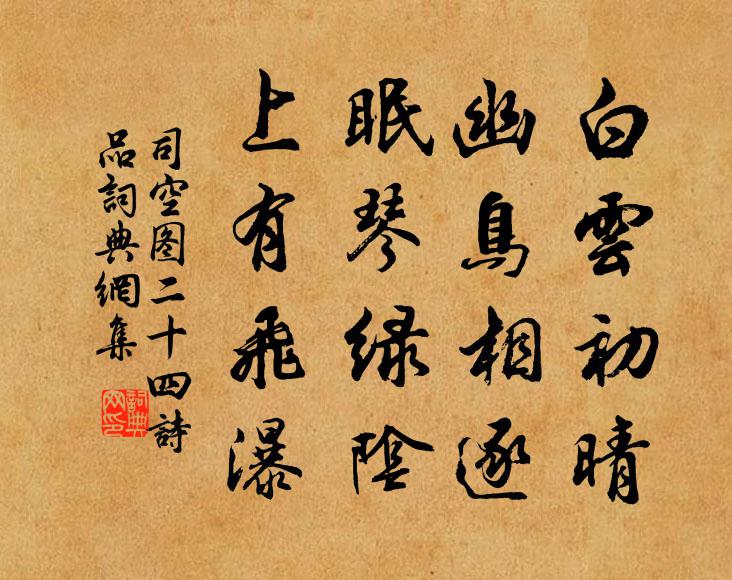 白雲初晴
幽鳥相逐
眠琴绿陰
上有飛瀑
司空图二十四詩
品詞典網集
詞典
网印